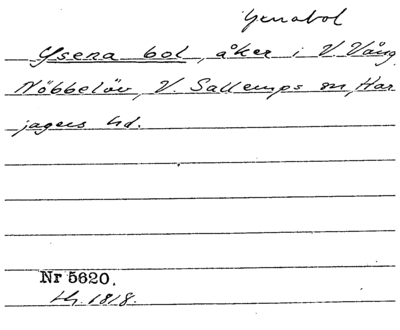 Ysenabol
Ysena bol, åker i V. Vång,
Nöbbelöv, V. Sallerups sn, Har
jagers hd.
Nr 5620.
LH. 1818.